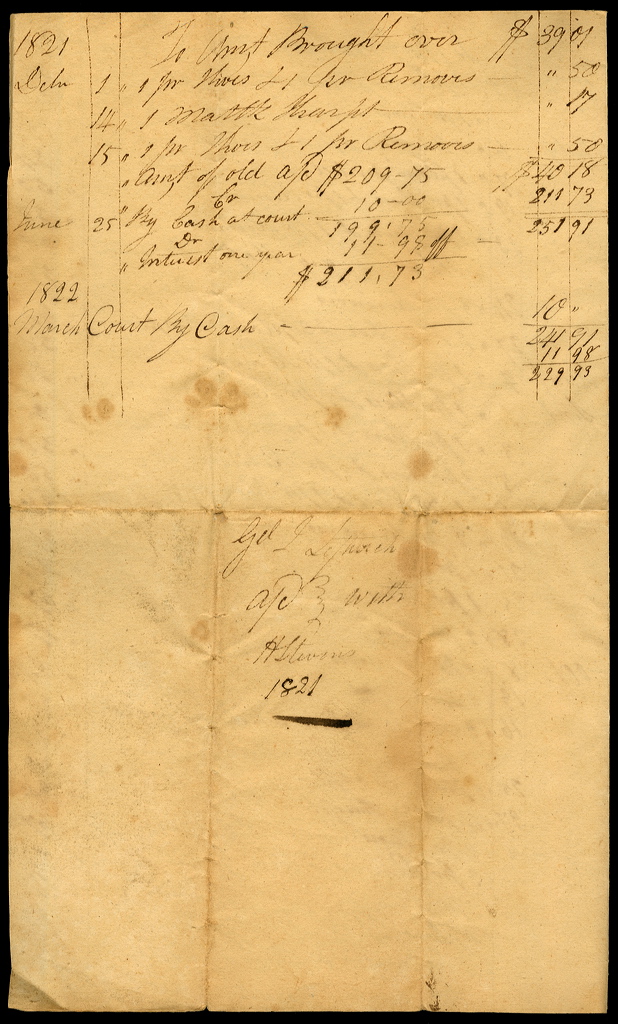 1821 To Amt Brought over $ 39 01
Decbr 1 " 1 pr Shoes & 1 pr Removes " 50
14 " 1 Mattk Sharpt " 17
15 " 1 pr Shoes & 1 pr Removes " 50
" Amt of old a/c $209-75 $40 18
Cr 10-00 211 73
June 25 " By Cash at court 199.75 251 91
Dr 11-98
" Interest one year
$211.73
1822
10 "
March Court By Cash 241 91
11 98
229 93
Gel J Leftwich
a/c with
H Stevens
1821